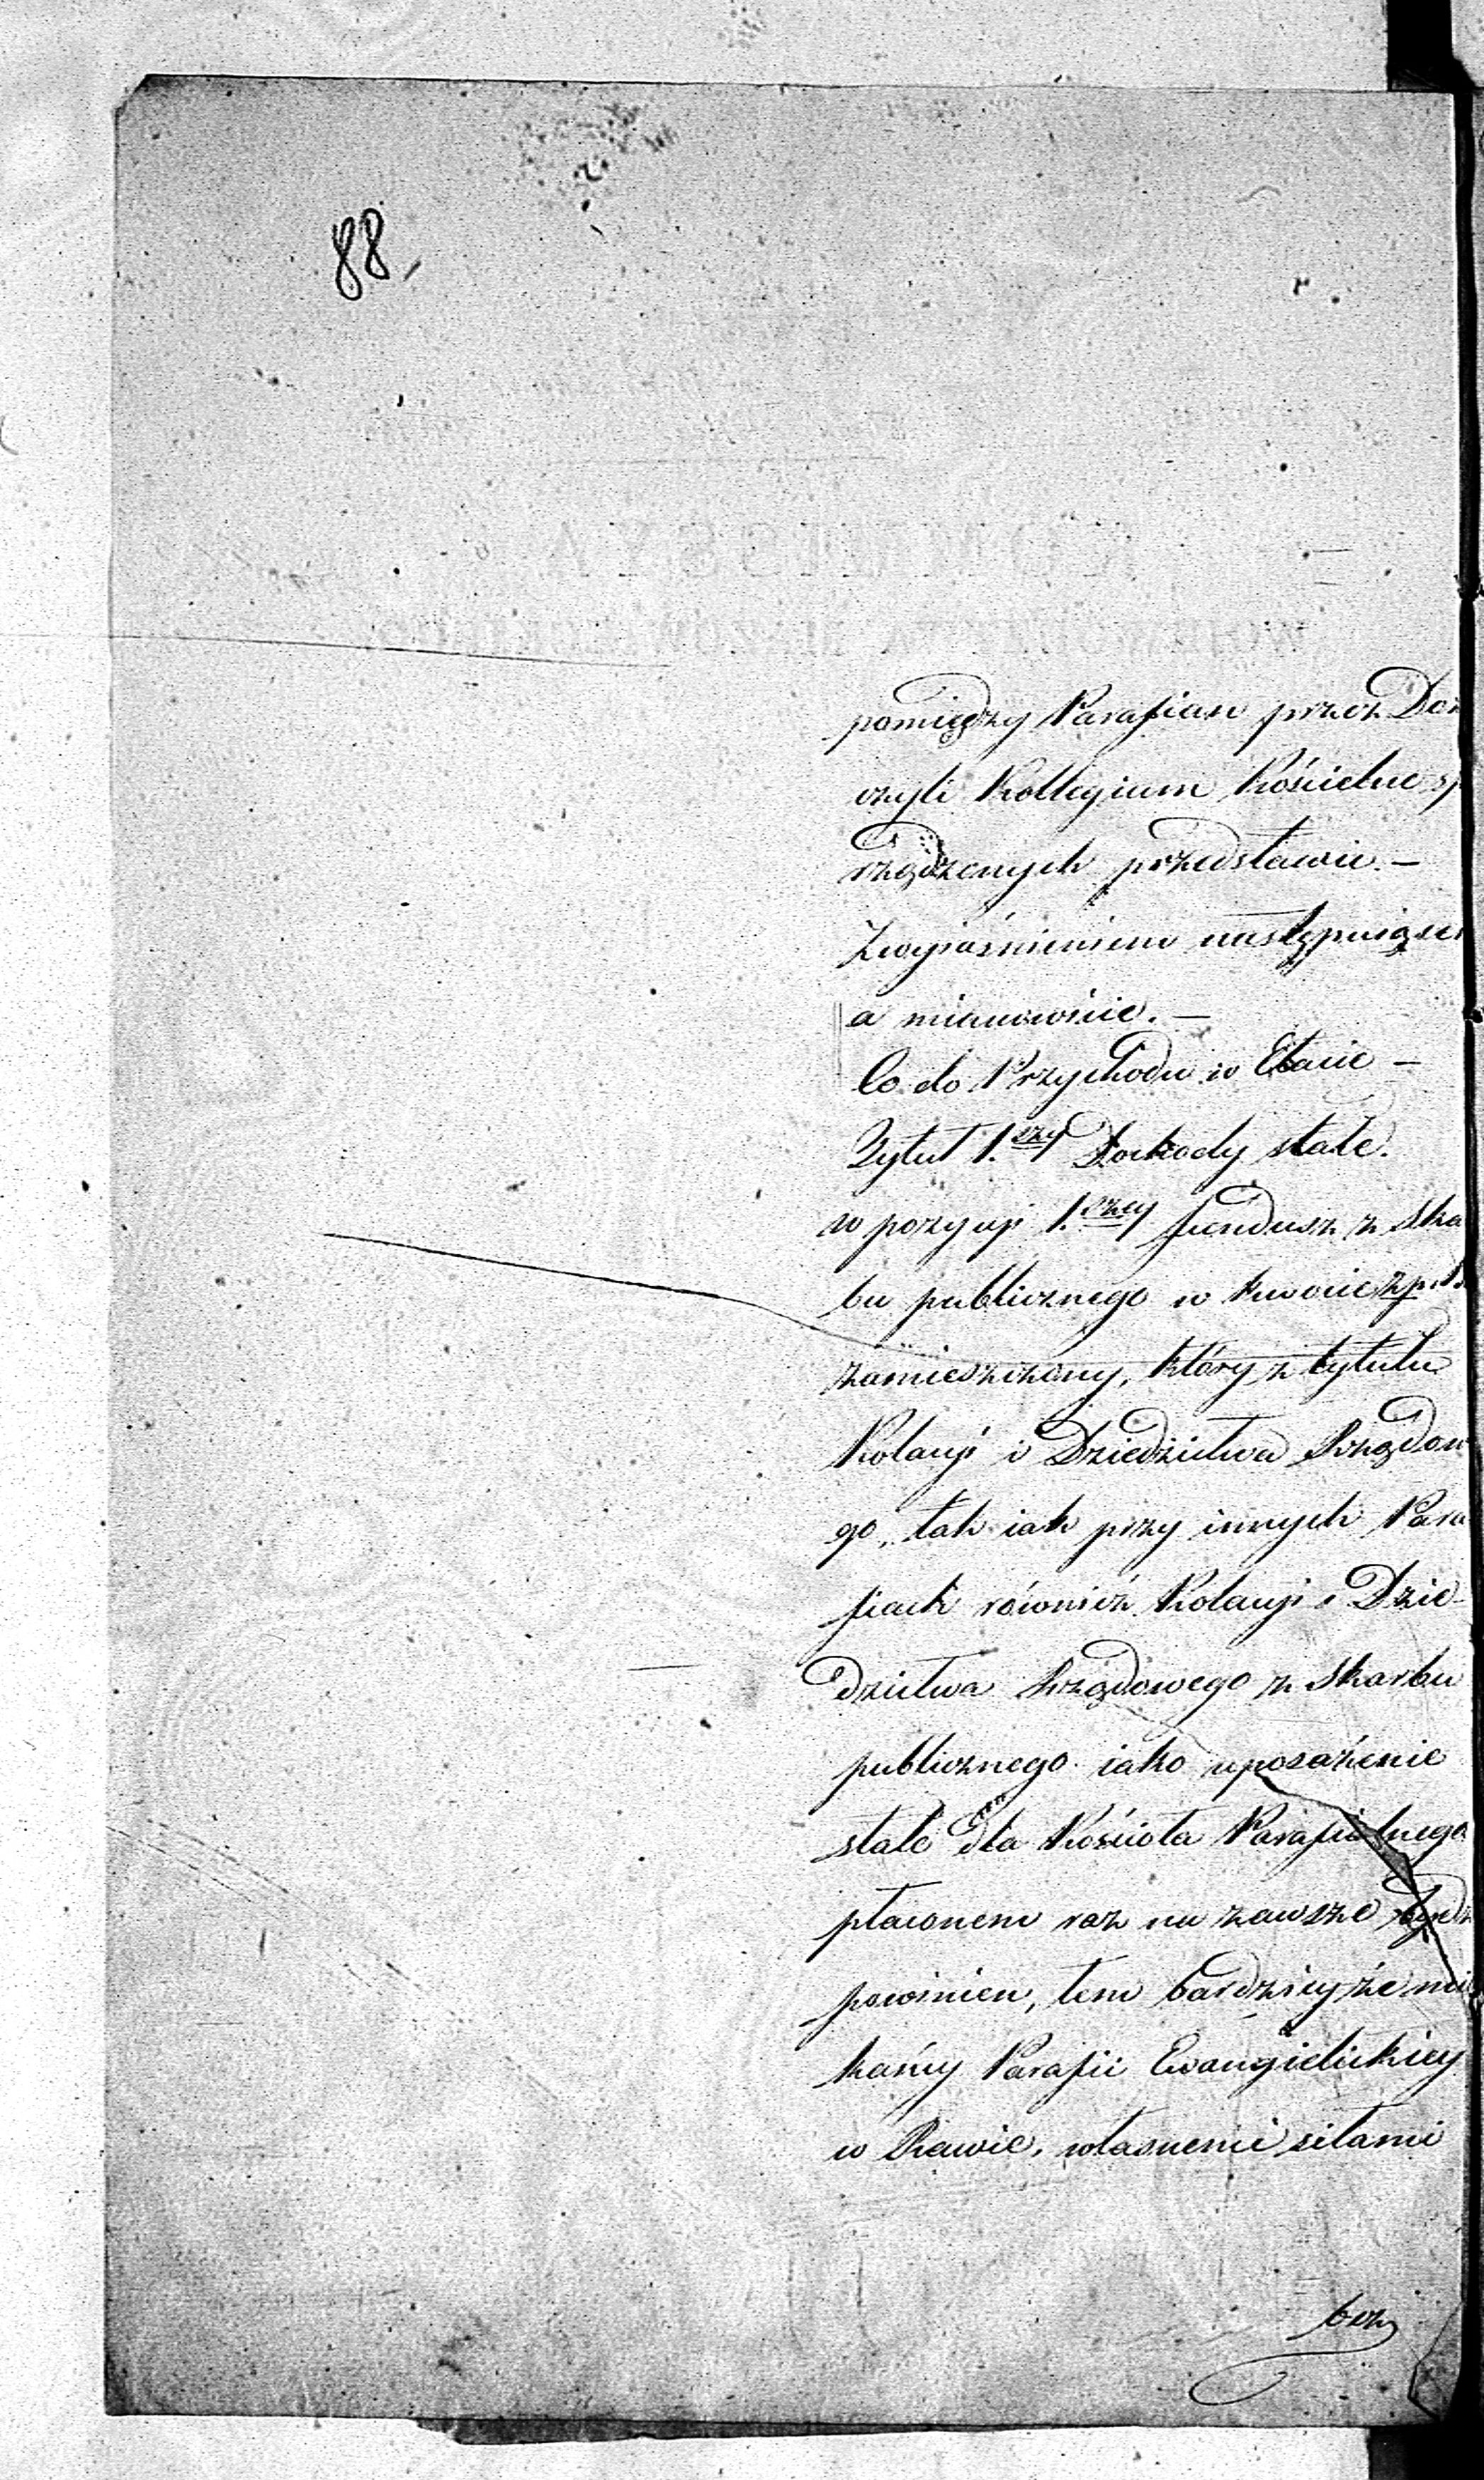 88,
pomiędzy Parafian przez Doz
czyli Kollegium Kościelne sp
rządzonych przedstawie. –
Zwyiaśnieniem następuiące
a mianowicie. –
Co do Przychodu w Etacie –
Tytuł 1.szy Dochody stałe.
w pozycyi 1.szey fundusz z Ska
bu publicznego w kwocie zp.
zamieszczony, który z tytułu
Kolacyi i Dziedzictwa Rządow
go, tak iak przy innych Para
fiach również Kolacyi i Dzie-
dzictwa Rządowego z Skarbu
publicznego iako uposażenie
stałe dla Kościoła Parafialnego
płaconem raz na zawsze bydz
powinien, tem bardziey że mie
kańcy Parafii Ewangielickiey
w Rawie, własnemi siłami
bez